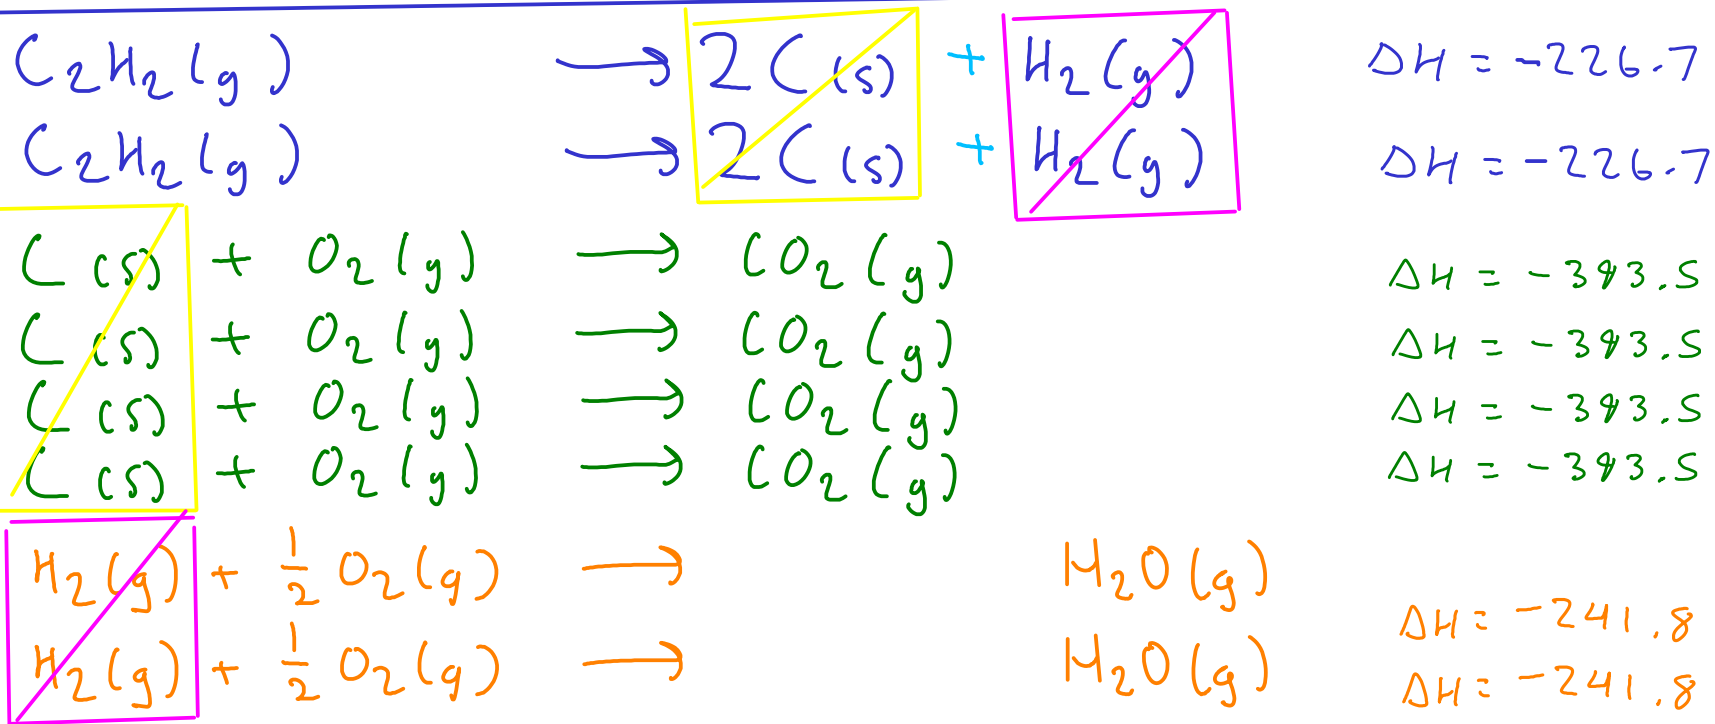 C₂H₂(g) ⟶ 2C(s) + H₂(g) ΔH = -226.7
C₂H₂(g) ⟶ 2C(s) + H₂(g) ΔH = -226.7
C(s) + O₂(g) ⟶ CO₂(g) ΔH = -393.5
C(s) + O₂(g) ⟶ CO₂(g) ΔH = -393.5
C(s) + O₂(g) ⟶ CO₂(g) ΔH = -393.5
C(s) + O₂(g) ⟶ CO₂(g) ΔH = -393.5
H₂(g) + ½ O₂(g) ⟶ H₂O(g) ΔH = -241.8
H₂(g) + ½ O₂(g) ⟶ H₂O(g) ΔH = -241.8